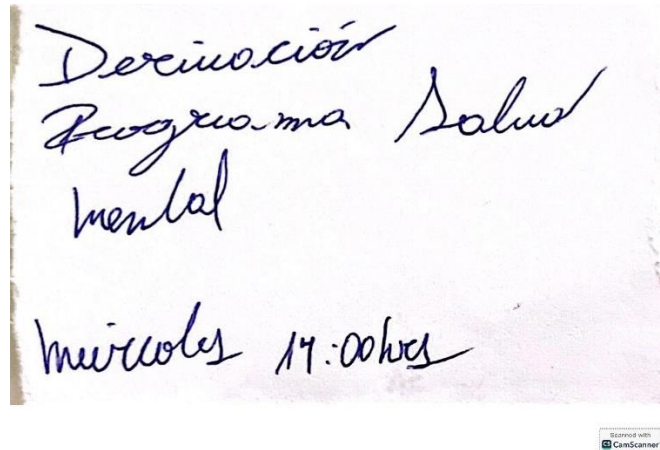 Derivación
Programa Salud
mental
miércoles 14:00hrs
Scanned with
CS CamScanner